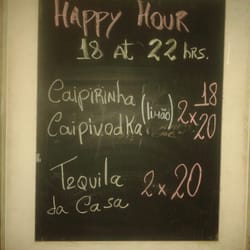 HAPPY HOUR
18 AT 22 HRS.
Caipirinha (limão) 2x 18
Caipivodka 20
Tequila 2x20
da Casa